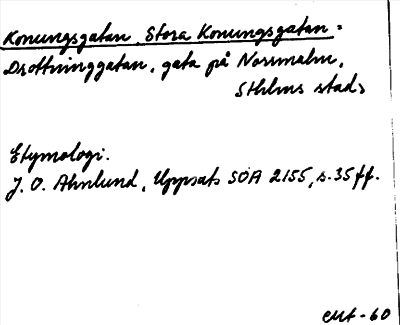 Konungsgatan, Stora Konungsgatan =
Drottninggatan, gata på Norrmalm,
Sthlms stad
Etymologi.
J. O. Ahnlund, Uppsats SOA 2155, s. 35 ff.
-60